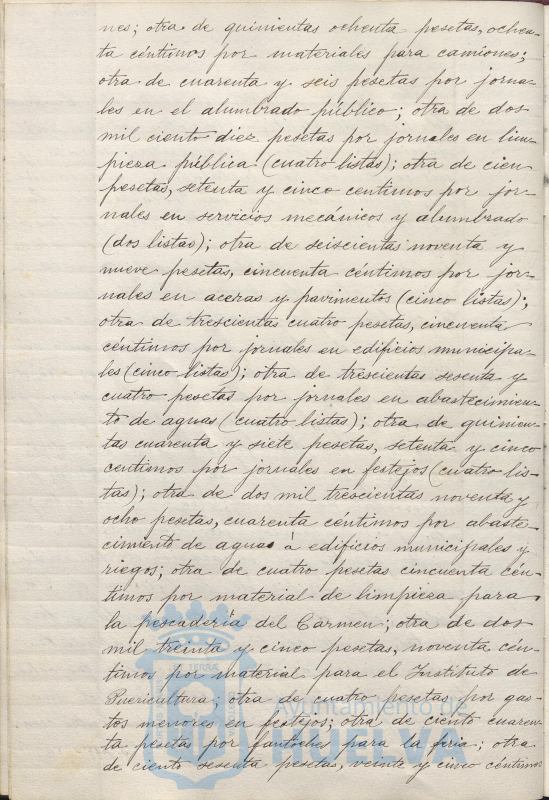 nes; otra de quinientas ochenta pesetas, ochen-
ta céntimos por materiales para camiones;
otra de cuarenta y seis pesetas por jorna-
les en el alumbrado público; otra de dos
mil ciento diez pesetas por jornales en lim-
pieza pública (cuatro listas); otra de cien
pesetas, setenta y cinco centimos por jor-
nales en servicios mecánicos y alumbrado
(dos listas); otra de seiscientas noventa y
nueve pesetas, cincuenta céntimos por jor-
nales en aceras y pavimentos (cinco listas);
otra de trescientas cuatro pesetas, cincuenta
céntimos por jornales en edificios municipa-
les (cinco listas); otra de trescientas sesenta y
cuatro pesetas por jornales en abastecimien-
to de aguas (cuatro listas); otra de quinien-
tas cuarenta y siete pesetas, setenta y cinco
centimos por jornales en festejos (cuatro lis-
tas); otra de dos mil trescientas noventa y
ocho pesetas, cuarenta céntimos por abaste-
cimiento de aguas á edificios municipales y
riegos; otra de cuatro pesetas cincuenta cén-
timos por material de limpieza para
la pescadería del Carmen; otra de dos
mil treinta y cinco pesetas, noventa cén-
timos por material para el Instituto de
Puericultura; otra de cuatro pesetas por gas-
tos menores en festejos; otra de ciento cuaren-
ta pesetas por fantoches para la feria; otra
de ciento sesenta pesetas, veinte y cinco céntimos
Ayuntamiento de
HUELVA